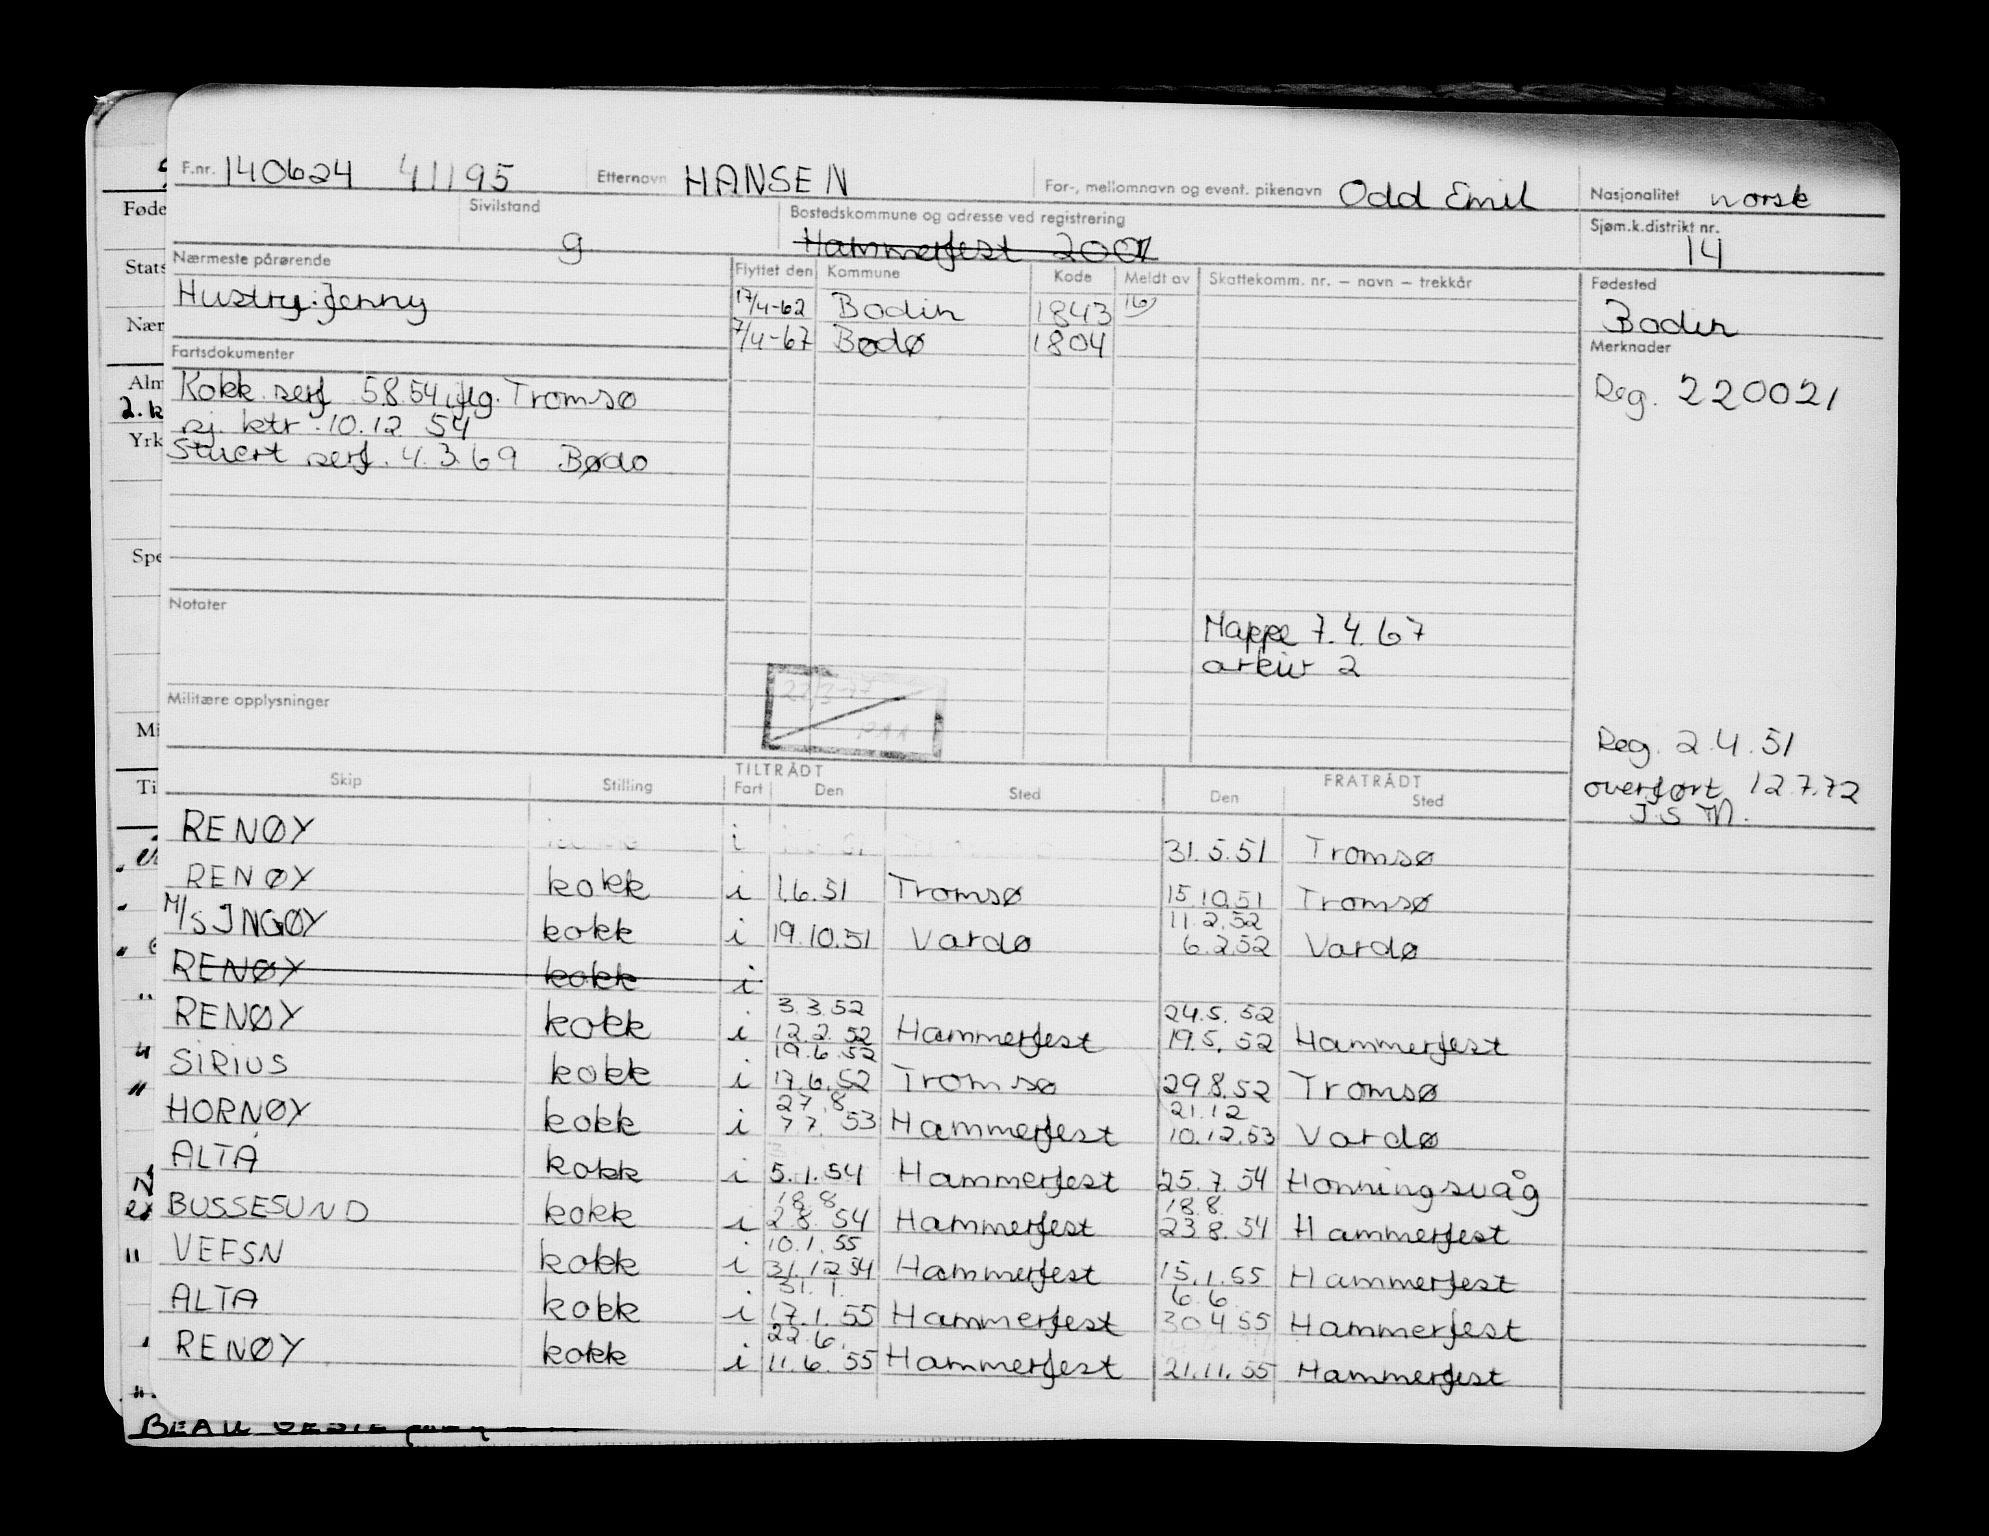 F.nr. 140624 41195 Etternavn HANSEN For-, mellomnavn og event. pikenavn Odd Emil Nasjonalitet norsk
Sivilstand g Bostedskommune og adresse ved registrering Hammerfest Sjøm.k.distrikt nr. 14
Nærmeste pårørende Flyttet den Kommune Kode Meldt av Skattekomm. nr. – navn – trekkår Fødested
Hustru: Jenny 17/4-62 Bodin 1843 Bodin
7/4-67 Bodø 1804
Fartsdokumenter Merknader
Kokk serf 5.8.54, flg. Tromsø Reg. 220021
sj. ktr. 10.12 54
Stuert serf. 4.3.69 Bodø
Notater
Mappe 7.4.67
arkiv 2
Militære opplysninger
Reg. 2.4.51
overført 12.7.72
J.S.M.
TILTRÅDT FRATRÅDT
Skip Stilling Fart Den Sted Den Sted
RENØY i 31.5.51 Tromsø
RENØY kokk i 1.6.51 Tromsø 15.10.51 Tromsø
11.2.52
M/S INGØY kokk i 19.10.51 Vardø 6.2.52 Vardø
RENØY kokk i
3.3.52 24.5.52
RENØY kokk i 12.2.52 Hammerfest 19.5.52 Hammerfest
19.6.52
SIRIUS kokk i 17.6.52 Tromsø 29.8.52 Tromsø
27.8 21.12
HORNØY kokk i 7.7.53 Hammerfest 10.12.53 Vardø
ALTA kokk i 5.1.54 Hammerfest 25.7.54 Honningsvåg
18.8 18.8.
BUSSESUND kokk i 2.8.54 Hammerfest 23.8.54 Hammerfest
10.1.55
VEFSN kokk i 31.12.54 Hammerfest 15.1.55 Hammerfest
31.1. 6.6.
ALTA kokk i 17.1.55 Hammerfest 30.4.55 Hammerfest
22.6.
RENØY kokk i 11.6.55 Hammerfest 21.11.55 Hammerfest
Føde
Stats
Nær
Alm
2. k
Yrk
Spe
Mi
Ti
BEAU GESTE